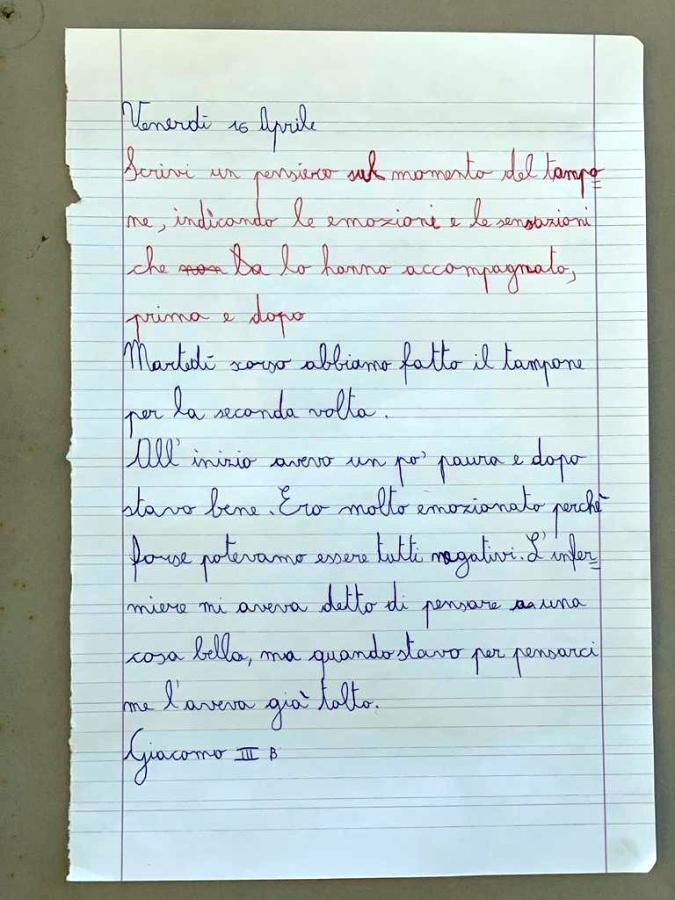 Venerdì 16 Aprile
Scrivi un pensiero sul momento del tampo=
ne, indicando le emozioni e le sensazioni
che lo hanno accompagnato,
prima e dopo
Martedì scorso abbiamo fatto il tampone
per la seconda volta.
All'inizio avevo un po' paura e dopo
stavo bene. Ero molto emozionato perchè
forse potevamo essere tutti negativi. L'infer=
miere mi aveva detto di pensare a una
cosa bella, ma quando stavo per pensarci
me l'aveva già tolto.
Giacomo III B